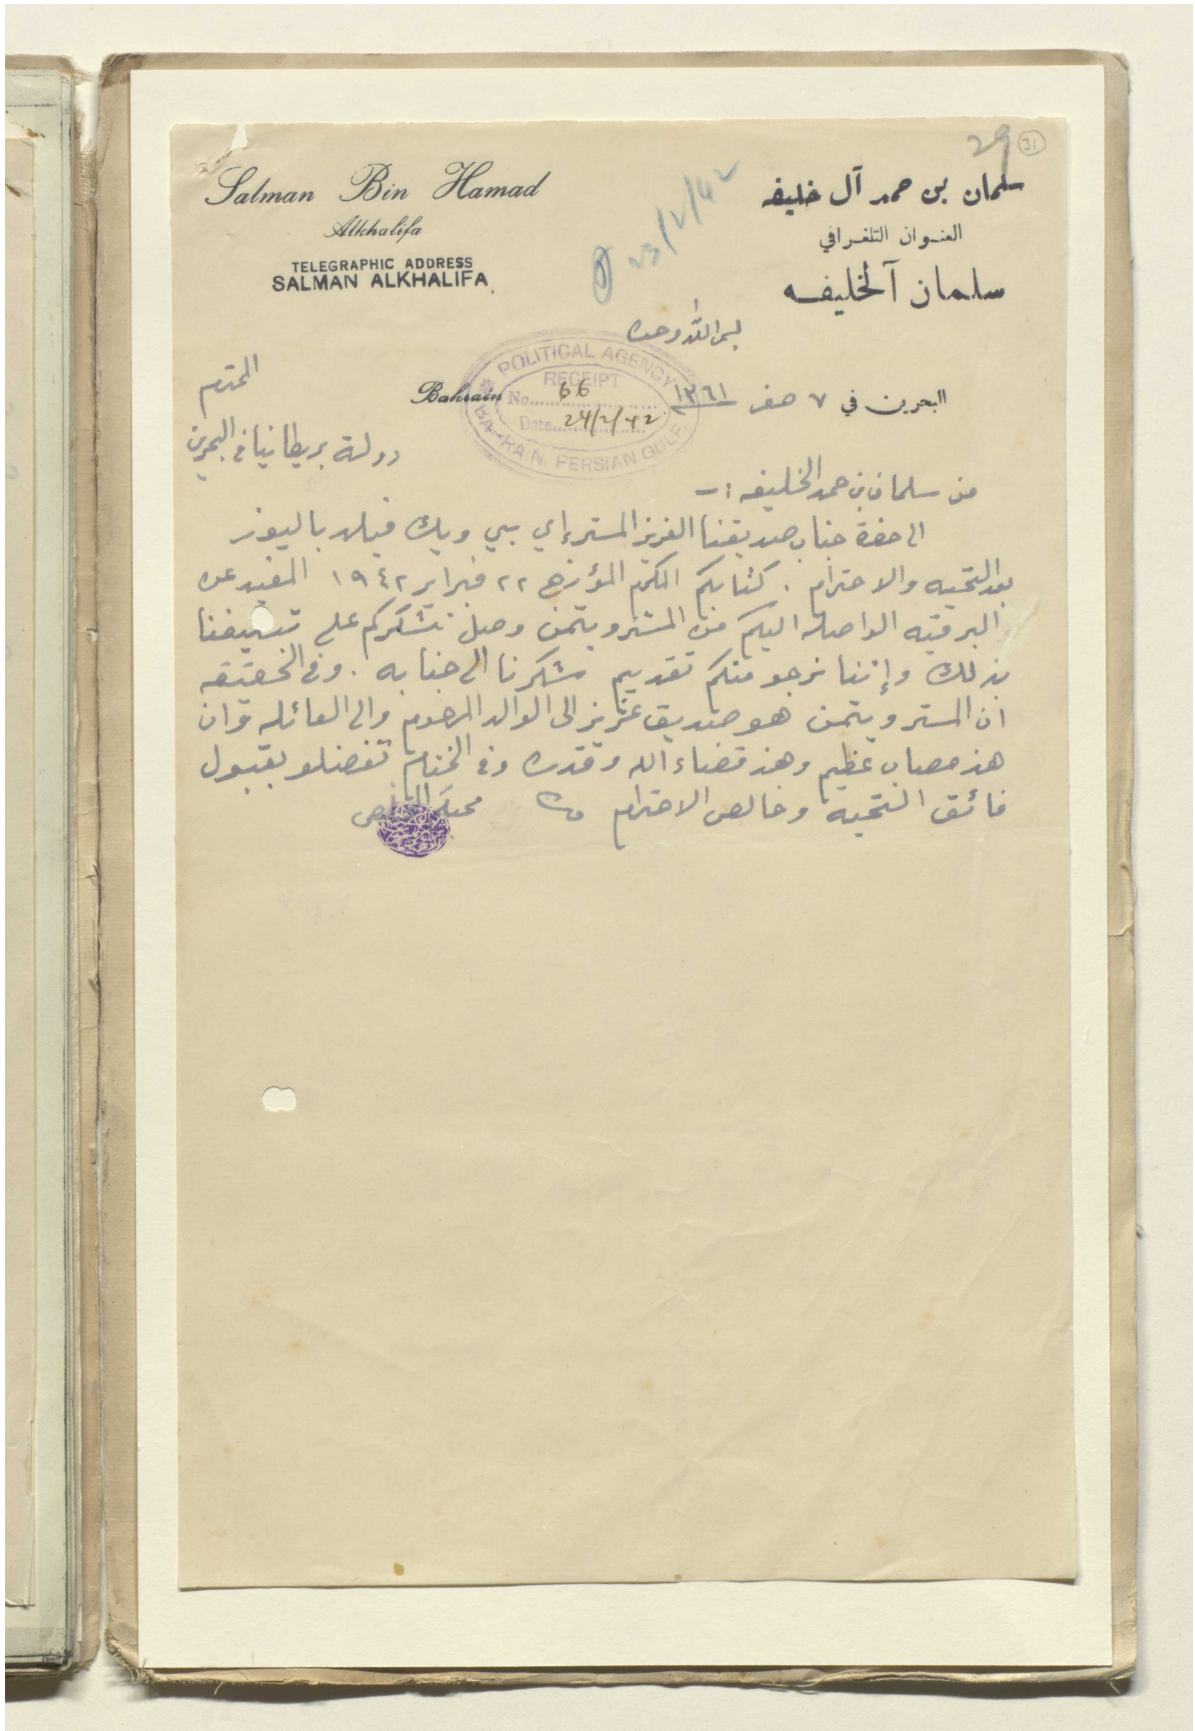 29
31
Salman Bin Hamad
Alkhalifa
TELEGRAPHIC ADDRESS
SALMAN ALKHALIFA.
سلمان بن حمد آل خليفه
العنوان التلغرافي
سلمان آلخليفه
23/2/42
بسم الله وحده
POLITICAL AGENCY
RECEIPT
No. 66
Date 24/2/42
BAHRAIN, PERSIAN GULF.
Bahrain
البحرين في ٧ صفر ١٣٦١
المحترم
دولة بريطانيا في البحرين
من سلمان بن حمد الخليفه :-
الى حضرة جناب صديقنا العزيز المستر إي بي ويك فيلد باليوز
بعد التحيه والاحترام . كتابكم المكرم المؤرخ ٢٢ فبراير ١٩٤٢ المفيد عن
البرقيه الواصله اليكم من المستر ويتمن وصل نتشكركم على تبليغنا
بذلك وإننا نرجو منكم تقديم تشكرنا الى جنابه . وفي الحقيقه
ان المستر ويتمن هو صديق عزيز الى الوالد المرحوم والى العائله وان
هذ مصاب عظيم وهذ قضاء الله وقدره وفي الختام تفضلو بقبول
فائق التحيه وخالص الاحترام محبكم المخلص